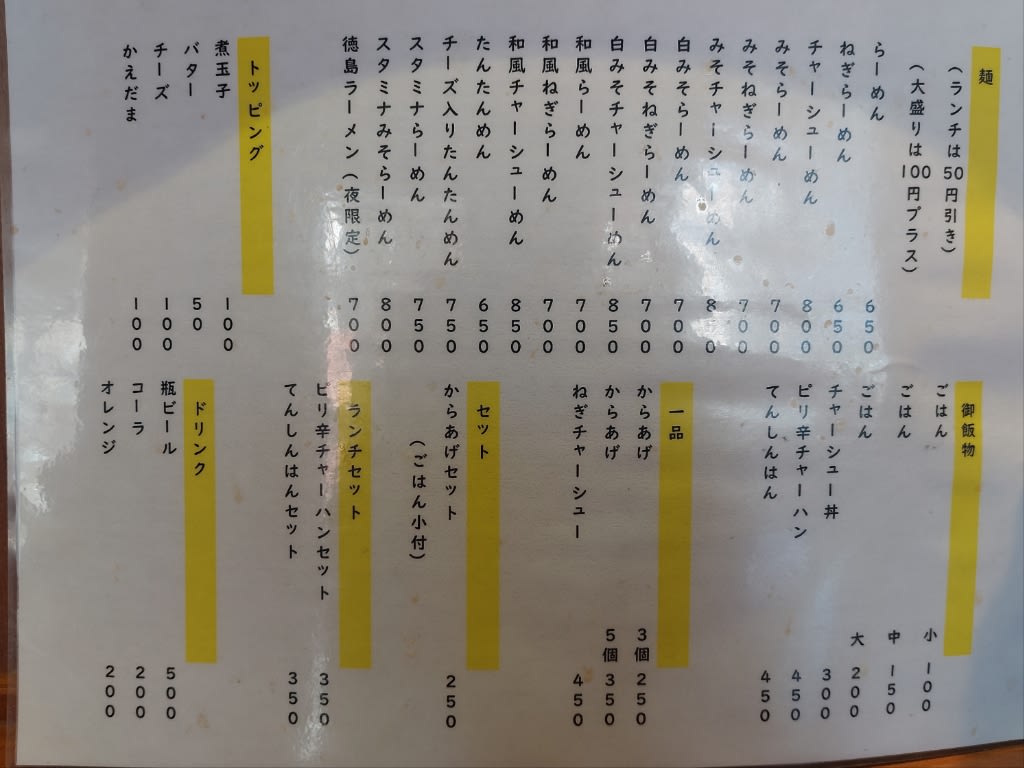 麺
(ランチは50円引き)
(大盛りは100円プラス)
らーめん 650
ねぎらーめん 650
チャーシューめん 800
みそらーめん 700
みそねぎらーめん 700
みそチャーシューめん
白みそらーめん 700
白みそねぎらーめん 700
白みそチャーシューめん 850
和風らーめん 700
和風ねぎらーめん 700
和風チャーシューめん 850
たんたんめん 650
チーズ入りたんたんめん 750
スタミナらーめん 750
スタミナみそらーめん 800
徳島ラーメン(夜限定) 700
トッピング
煮玉子 100
バター 50
チーズ 100
かえだま 100
御飯物
ごはん 小 100
ごはん 中 150
ごはん 大 200
チャーシュー丼 300
ピリ辛チャーハン 450
てんしんはん 450
一品
からあげ 3個 250
からあげ 5個 350
ねぎチャーシュー 450
セット
からあげセット 250
(ごはん小付)
ランチセット
ピリ辛チャーハンセット 350
てんしんはんセット 350
ドリンク
瓶ビール 500
コーラ 200
オレンジ 200